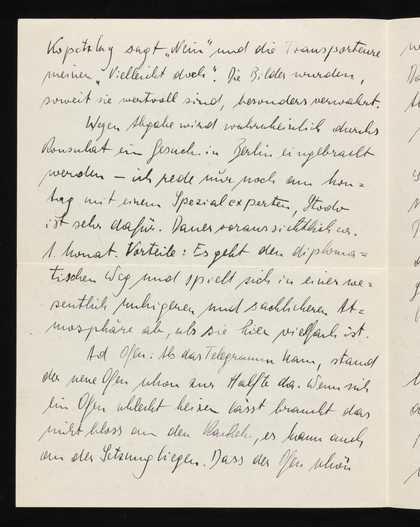 Kopitzlag sagt „Nein" und die Transporteure
meinen „Vielleicht doch". Die Bilder wurden,
soweit sie wertvoll sind, besonders verwahrt.
Wegen Abgabe wird wahrscheinlich durchs
Konsulat ein Gesuch in Berlin eingebracht
werden – ich rede nur noch am Mon-
tag mit einem Spezialexperten,
ist sehr dafür. Dauer voraussichtlich ca.
1 Monat. Vorteile: Es geht den diploma-
tischen Weg und spielt sich in einer we-
sentlich ruhigeren und sachlicheren At-
mosphäre ab, als sie hier vielfach ist.
Ad Ofen: Als das Telegramm kam, stand
der neue Ofen schon zur Hälfte da. Wenn sich
ein Ofen schlecht heizen lässt braucht das
nicht bloss an den Kacheln, es kann auch
an der Setzung liegen. Dass der Ofen schön